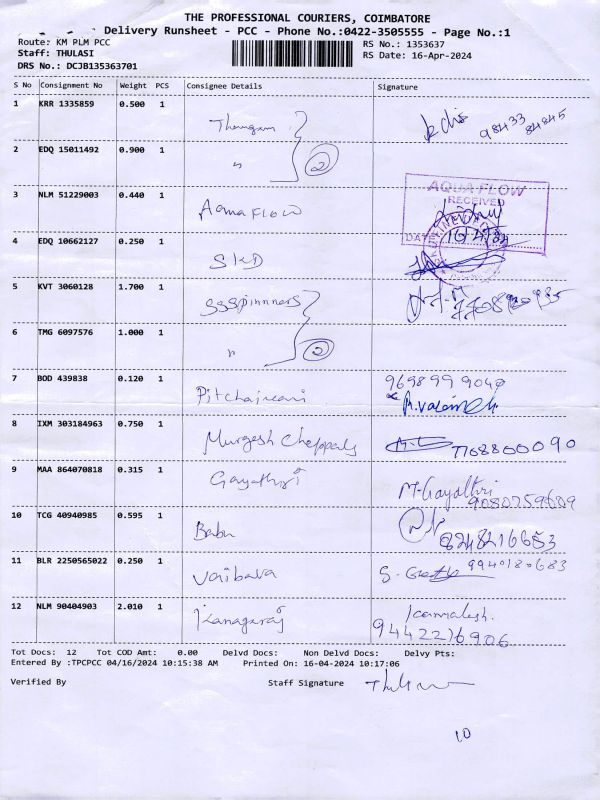 THE PROFESSIONAL COURIERS, COIMBATORE
Delivery Runsheet - PCC - Phone No.:0422-3505555 - Page No.:1
Route: KM PLM PCC
Staff: THULASI
DRS No.: DCJB135363701
RS No.: 1353637
RS Date: 16-Apr-2024
S No Consignment No Weight PCS Consignee Details Signature
1 KRR 1335859 0.500 1 98433 84845
2 EDQ 15011492 0.900 1 " 2
3 NLM 51229003 0.440 1 Aqua Flow
AQUA FLOW
RECEIVED
4 EDQ 10662127 0.250 1 SKD
5 KVT 3060128 1.700 1 SSSpinnners
6 TMG 6097576 1.000 1 " 2
7 BOD 439838 0.120 1 Pitchaimani 9698999040
8 IXM 303184963 0.750 1 Murgesh 7708800090
9 MAA 864070818 0.315 1 Gayathri M.Gayathri
9080759609
10 TCG 40940985 0.595 1 Babu 8248216653
11 BLR 2250565022 0.250 1 Vaibava 9940180683
12 NLM 90404903 2.010 1 Kanagaraj
9442216906
Tot Docs: 12 Tot COD Amt: 0.00 Delvd Docs: Non Delvd Docs: Delvy Pts:
Entered By :TPCPCC 04/16/2024 10:15:38 AM Printed On: 16-04-2024 10:17:06
Verified By Staff Signature
10